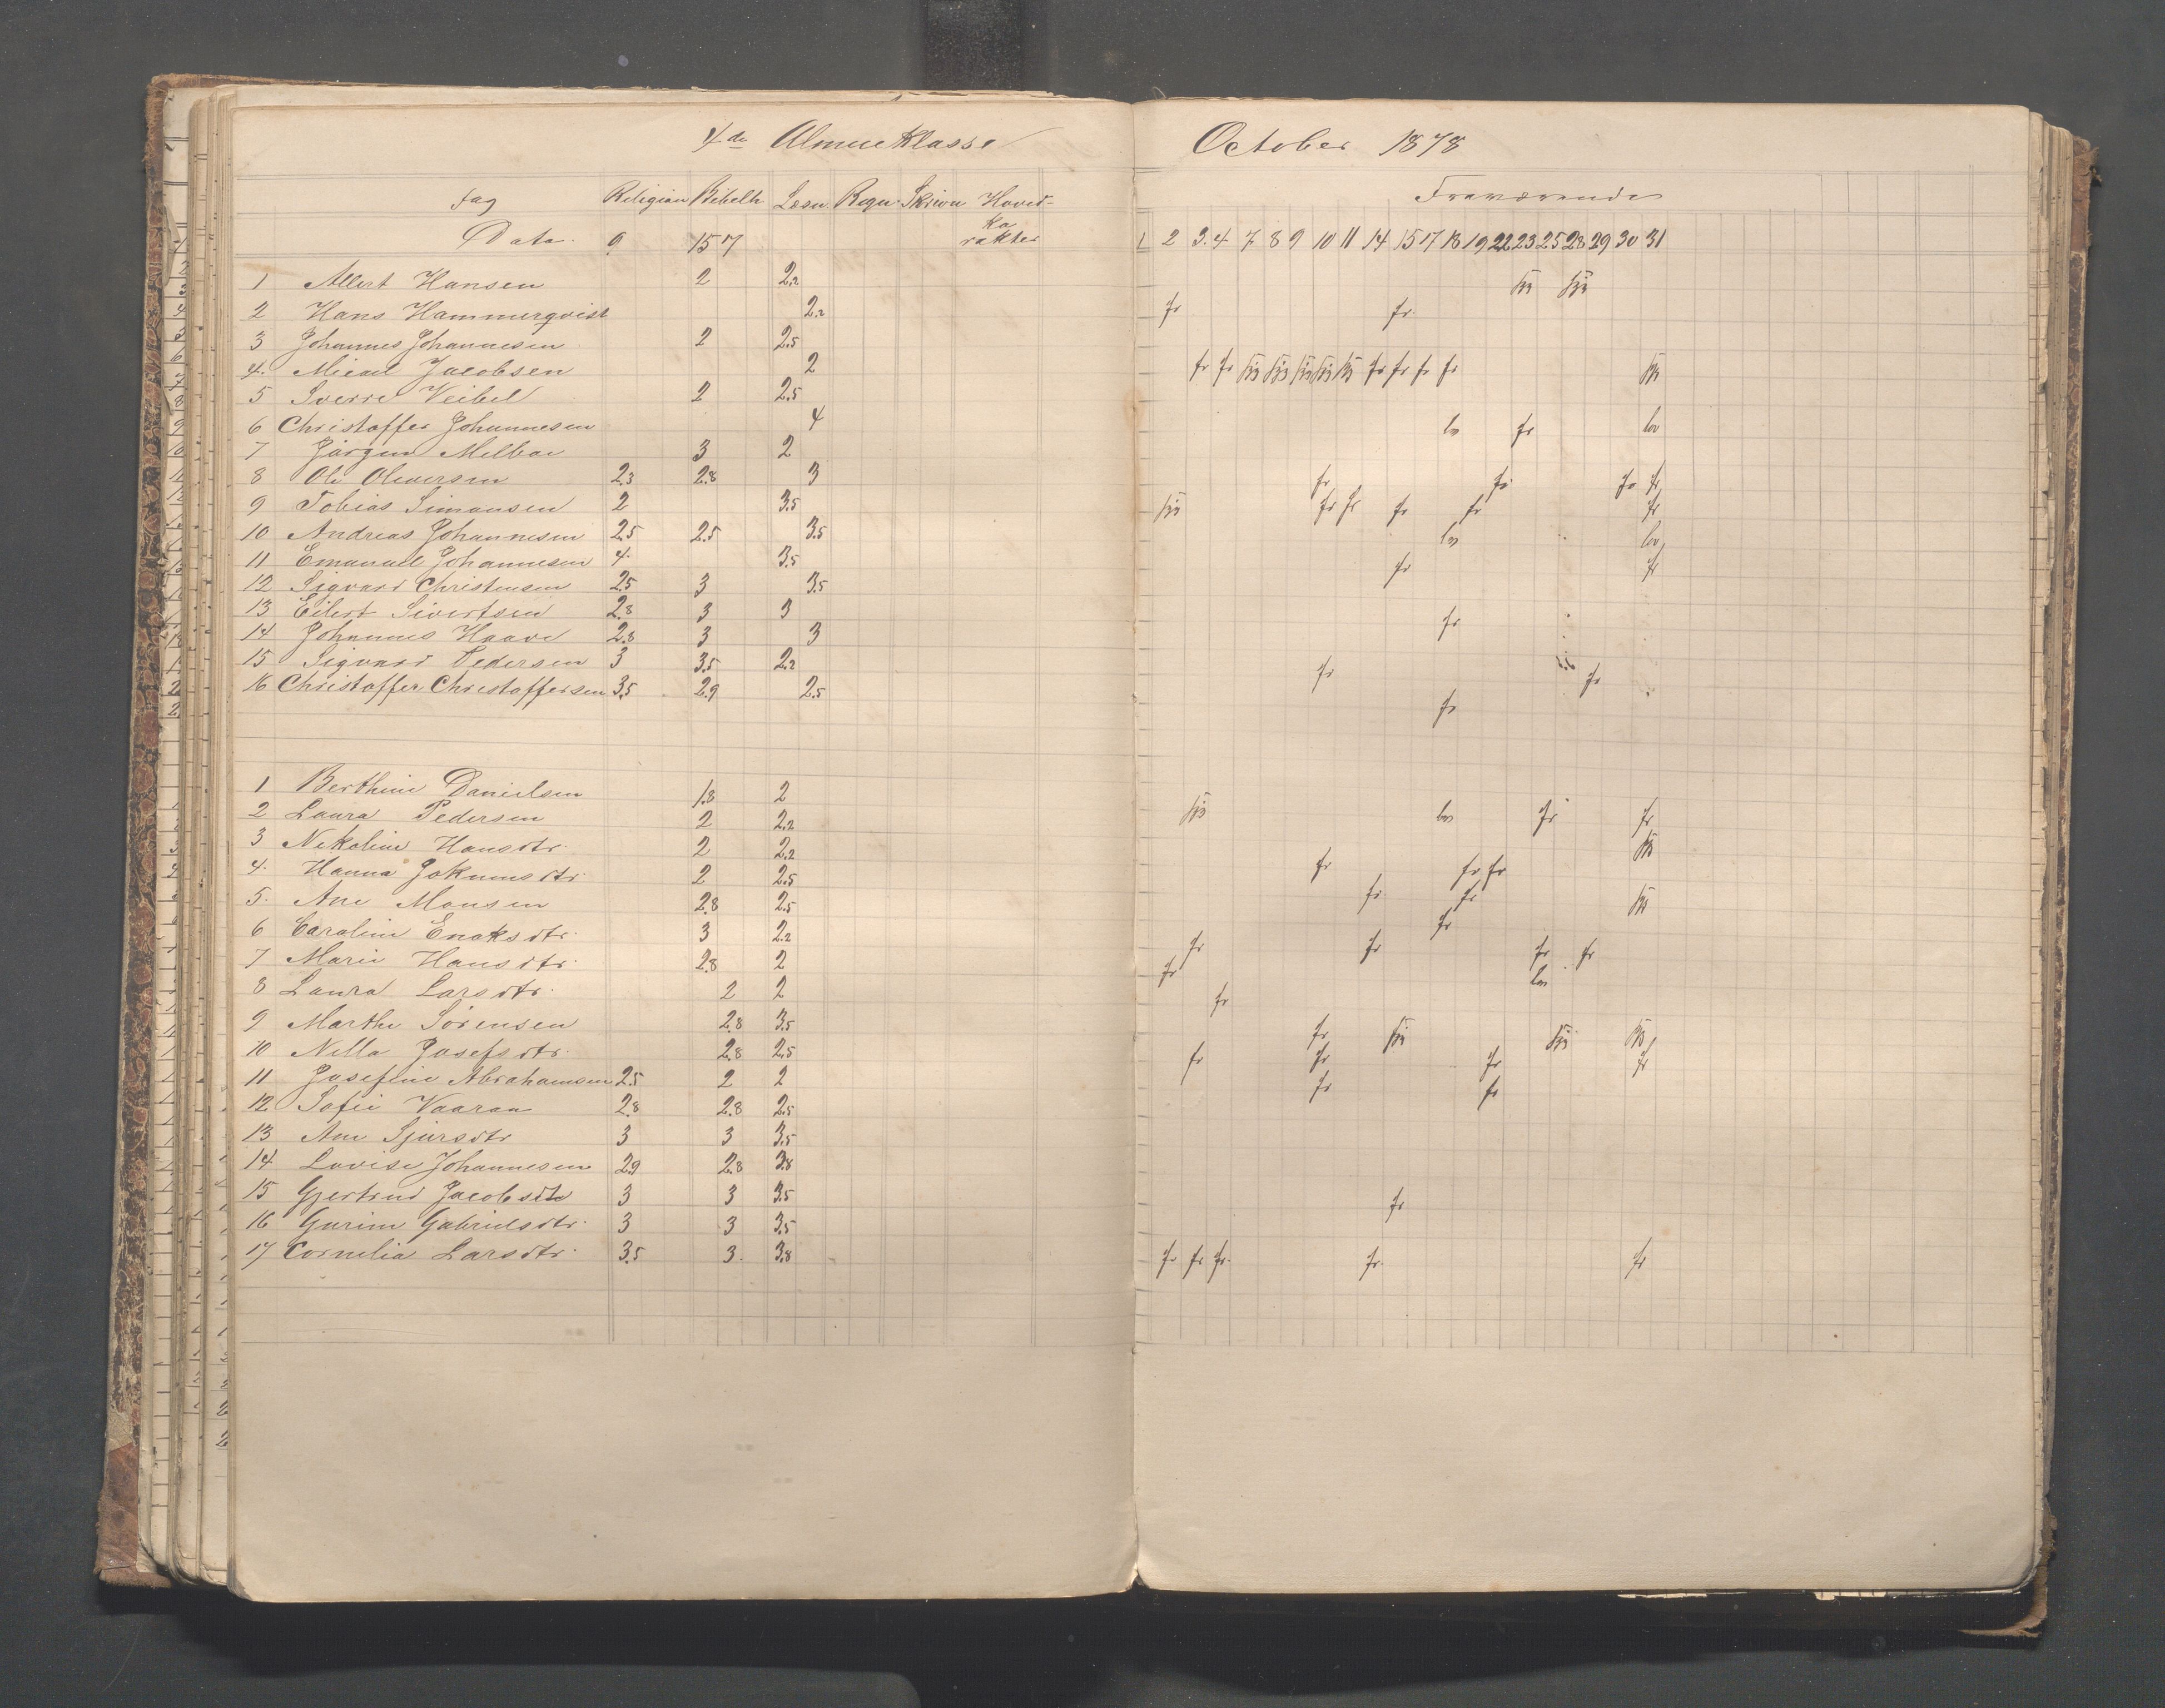 4de Almueklasse
Fag Religion Bibelh Læsn Regn Skrivn Hoved-
ka
Dato 9 15 17 rakter
1 Allert Hansen 2 2.2
2 Hans Hammerqvist 2.2
3 Johannes Johannesen 2 2.5
4. Micael Jacobsen 2
5 Sverre Veibel 2 2.5
6 Christoffer Johannesen 4
7 Jørgen Melbøe 3 2
8 Ole Oliversen 2.3 2.8 3
9 Tobias Simonsen 2 3.5
10 Andreas Johannesen 2.5 2.5 3.5
11 Emanuel Johannesen 4. 3.5
12 Sigvard Christensen 2.5 3 3.5
13 Eilert Sivertsen 2.8 3 3
14 Johannes Haave 2.8 3 3
15 Sigvard Pedersen 3 3.5 2.2
16 Christoffer Christoffersen 3.5 2.9 2.5
1 Berthine Danielsen 1.8 2
2 Laura Pedersen 2 2.2
3 Nikoline Hansdtr. 2 2.2
4. Hanna Jokumsdtr. 2 2.5
5. Ane Monsen 2.8 2.5
6 Caroline Enoksdtr. 3 2.2
7 Marie Hansdtr. 2.8 2
8 Laura Larsdtr. 2 2
9 Marthe Sørensen 2.8 3.5
10 Nella Josefsdtr. 2.8 2.5
11 Josefine Abrahamsen 2.5 2 2
12 Sofie Vaaran 2.8 2.8 2.5
13 Ane Sjursdtr 3 3 3.5
14 Lovise Johannesen 2.9 2.8 3.8
15 Gjertrud Jacobsdtr 3 3 3.5
16 Gurine Gabrielsdtr. 3 3 3.5
17 Cornelia Larsdtr. 3.5 3. 3.8
October 1878
Fraværende
1 2 3. 4 7 8 9 10 11 14 15 17 18 19 22 23 25 28 29 30 31
syg syg
fr fr.
fr fr syg syg syg syg syg fr fr fr fr syg
lov fr lov
fr fr fr fr
syg fr fr fr fr fr
lov lov
fr fr
fr
fr fr
fr
syg lov fr fr
syg
fr fr fr
fr fr syg
fr
fr fr fr fr
fr lov
fr
fr syg syg syg
fr fr fr fr
fr fr
fr
fr fr fr. fr. fr